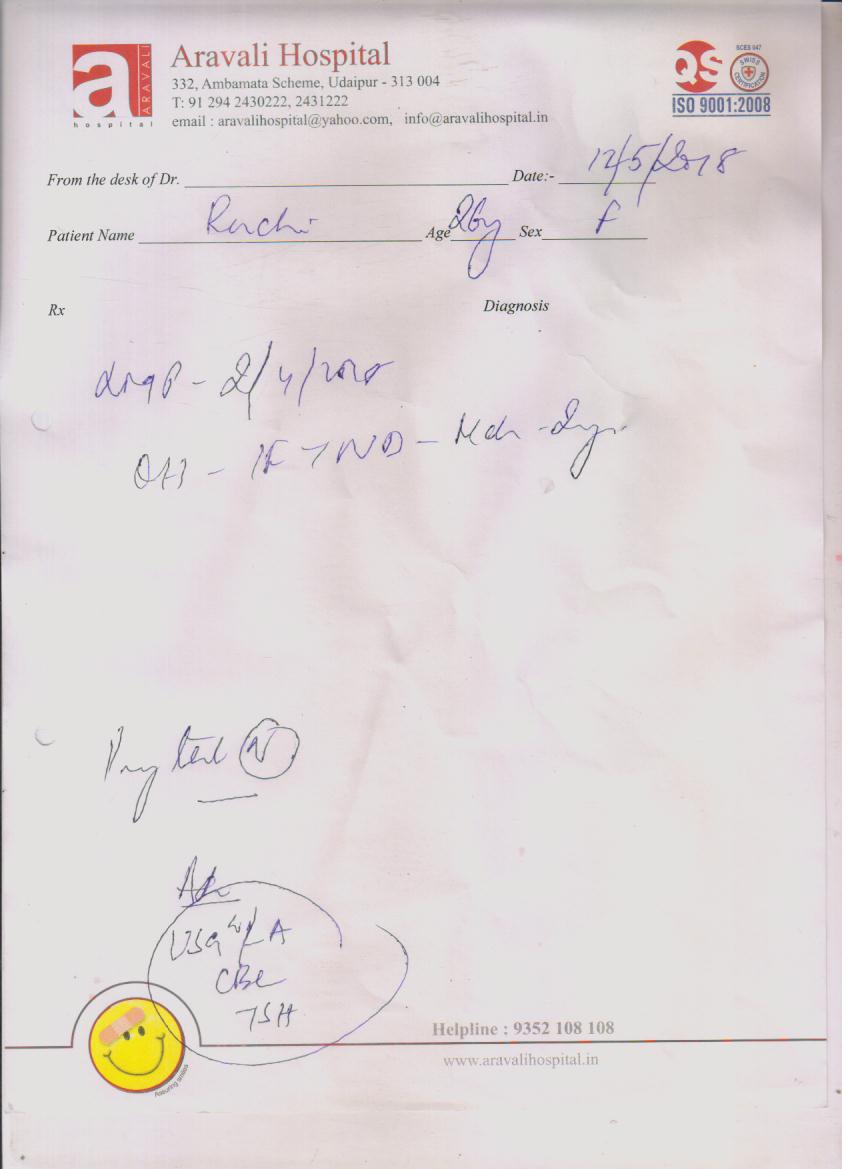 a
ARAVALI
hospital
Aravali Hospital
332, Ambamata Scheme, Udaipur - 313 004
T: 91 294 2430222, 2431222
email : aravalihospital@yahoo.com, info@aravalihospital.in
QS
SCES 047
SWISS
CERTIFICATION
ISO 9001:2008
From the desk of Dr. Date:- 12/5/2018
Patient Name Ruchi Age 26y Sex F
Rx Diagnosis
LMP - 2/4/2018
O/H - 1F FTND -
Preg test N
Adv
USG W/A
CBC
TSH
Helpline : 9352 108 108
www.aravalihospital.in
Assuring smiles